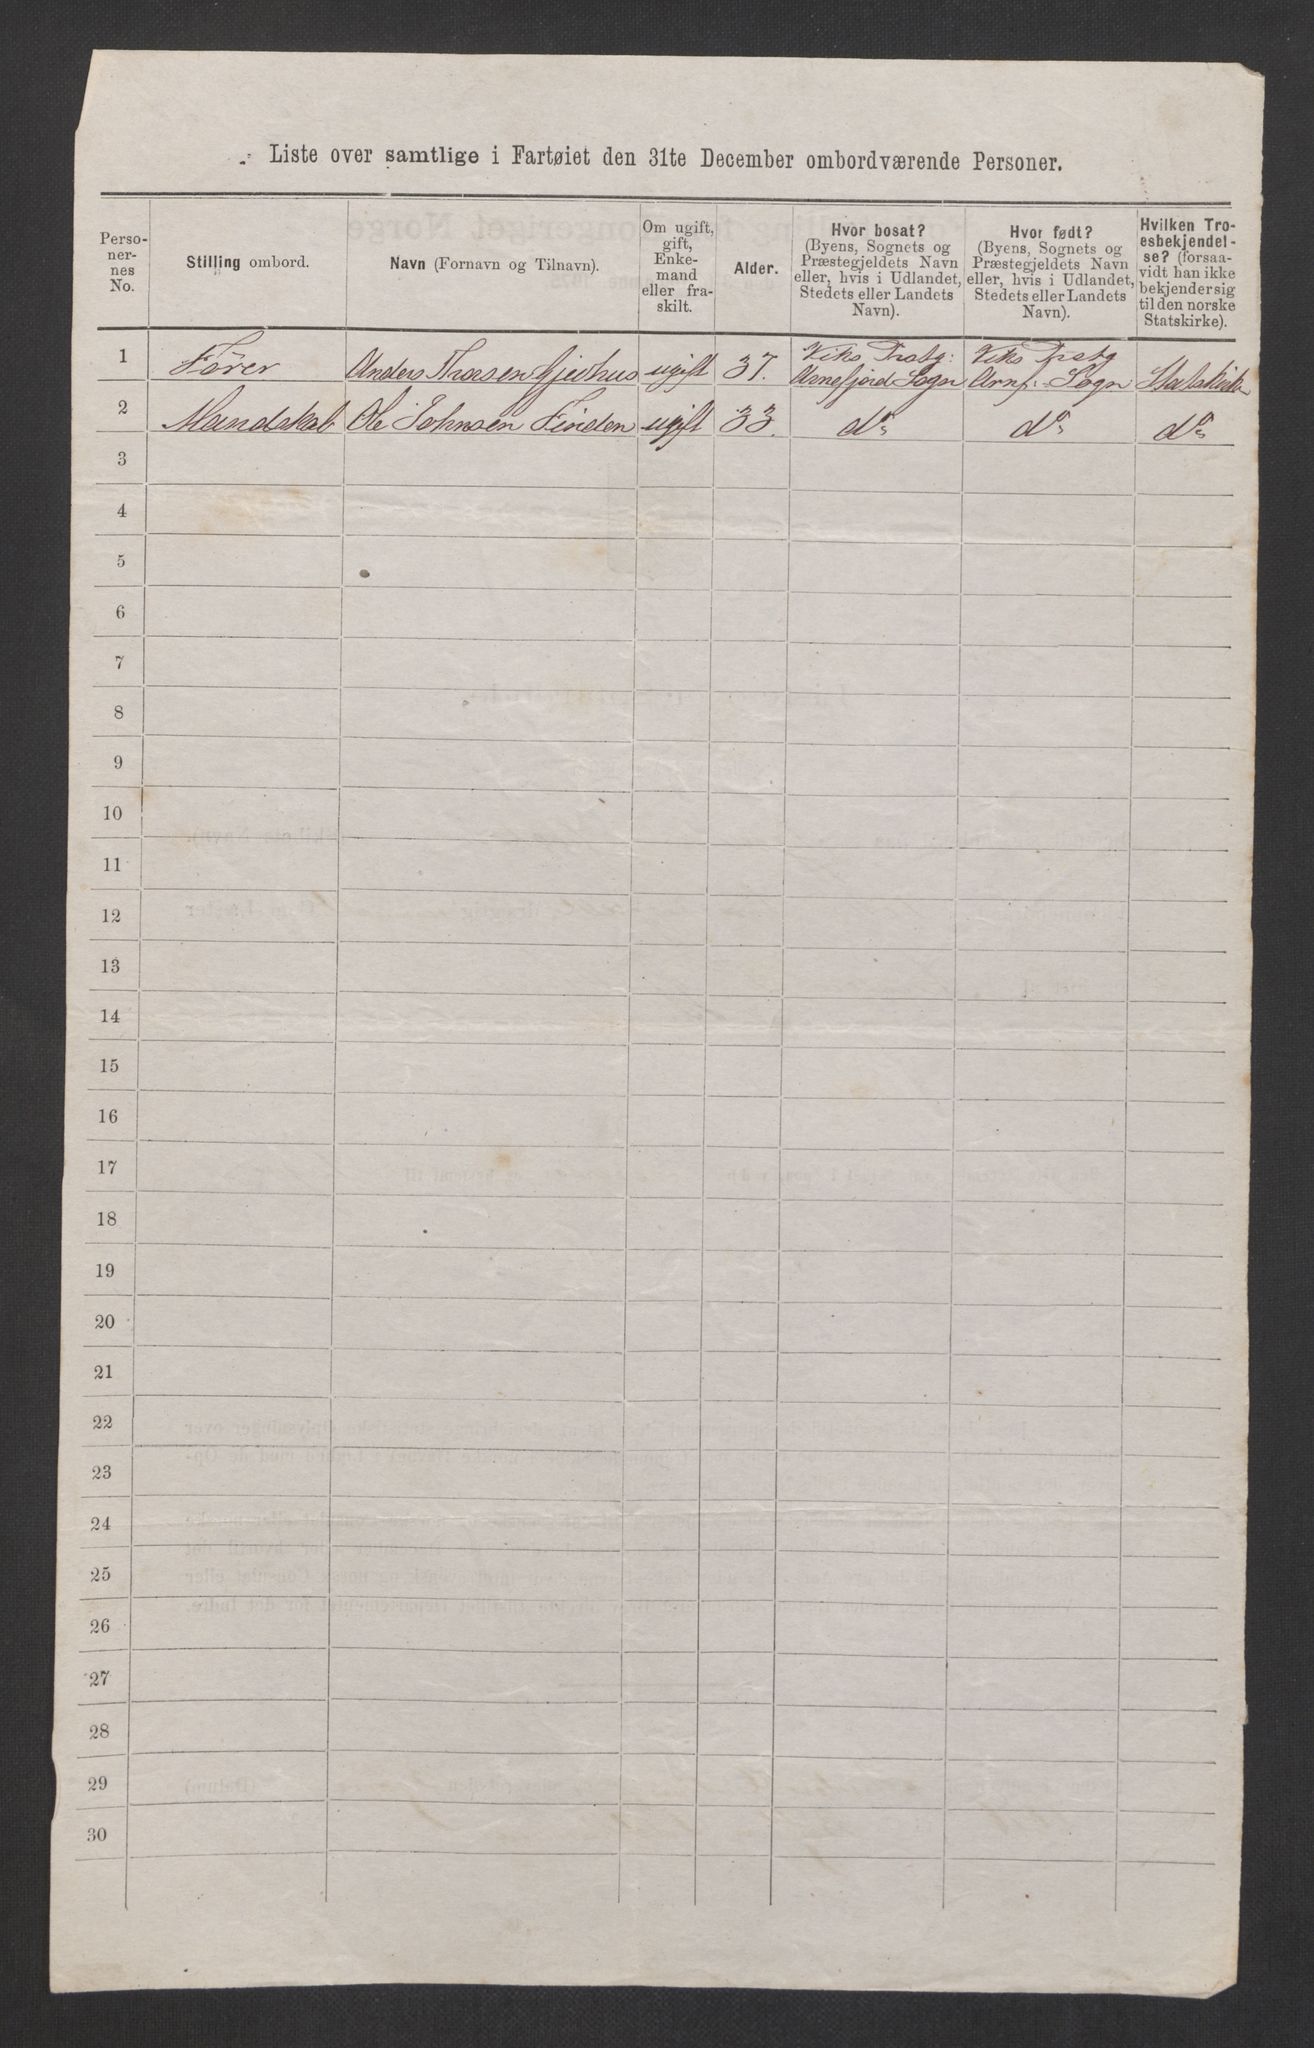 Liste over samtlige i Fartøiet den 31te December ombordværende Personer.
Perso-
ner-
nes
No.
Stilling ombord.
Navn (Fornavn og Tilnavn).
Om ugift,
gift,
Enke-
mand
eller fra-
skilt.
Alder.
Hvor bosat?
(Byens, Sognets og
Præstegjeldets Navn
eller, hvis i Udlandet,
Stedets eller Landets
Navn).
Hvor født?
(Byens, Sognets og
Præstegjeldets Navn
eller, hvis i Udlandet,
Stedets eller Landets
Navn).
Hvilken Tro-
esbekjendel-
se? (forsaa-
vidt han ikke
bekjender sig
til den norske
Statskirke).
1 Förer Anders Thorsen ugift 37. Viks Prstg: Arnefjord Sogn Viks Prstg Arnf. Sogn Statskirke
2 Mandskab Ole Johnsen Finden ugift 33. do do do
3
4
5
6
7
8
9
10
11
12
13
14
15
16
17
18
19
20
21
22
23
24
25
26
27
28
29
30